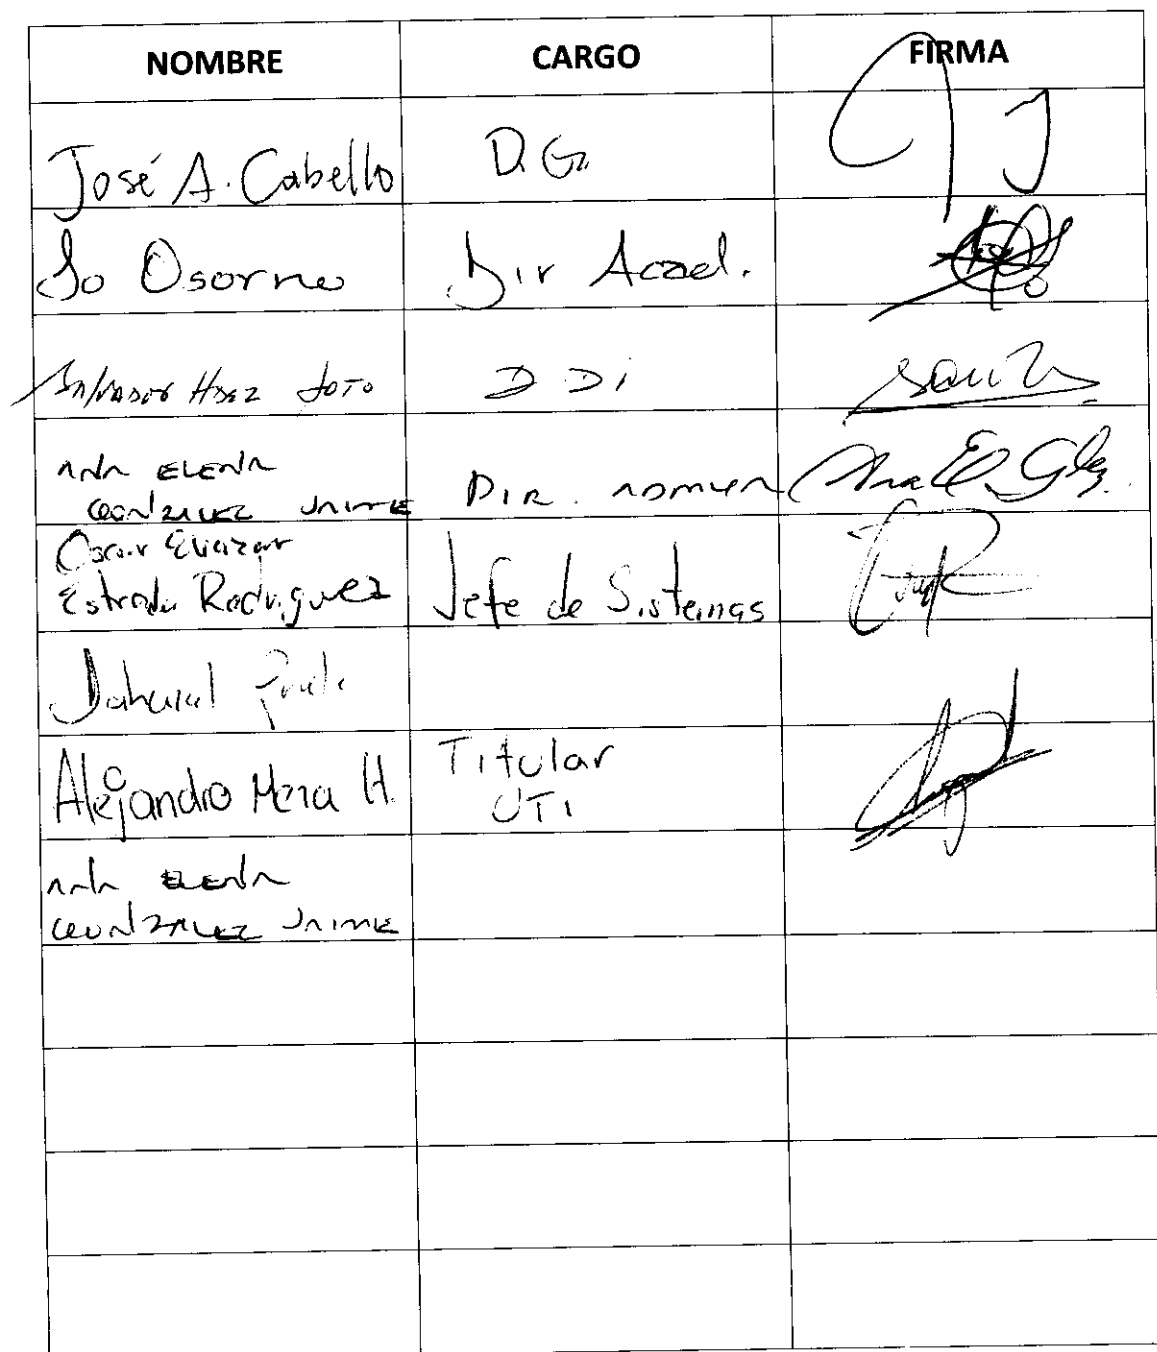 NOMBRE CARGO FIRMA
José A. Cabello D.G.
Jo Osorno Dir Acad.
Salvador Hdez Soto D D i
ANA ELENA
GONZALEZ JAIME DIR. ADMON Ana El. Glz.
Oscar Eliazar
Estrada Rodriguez Jefe de Sistemas
Alejandro Mera H. Titular
UTI
ANA ELENA
GONZALEZ JAIME